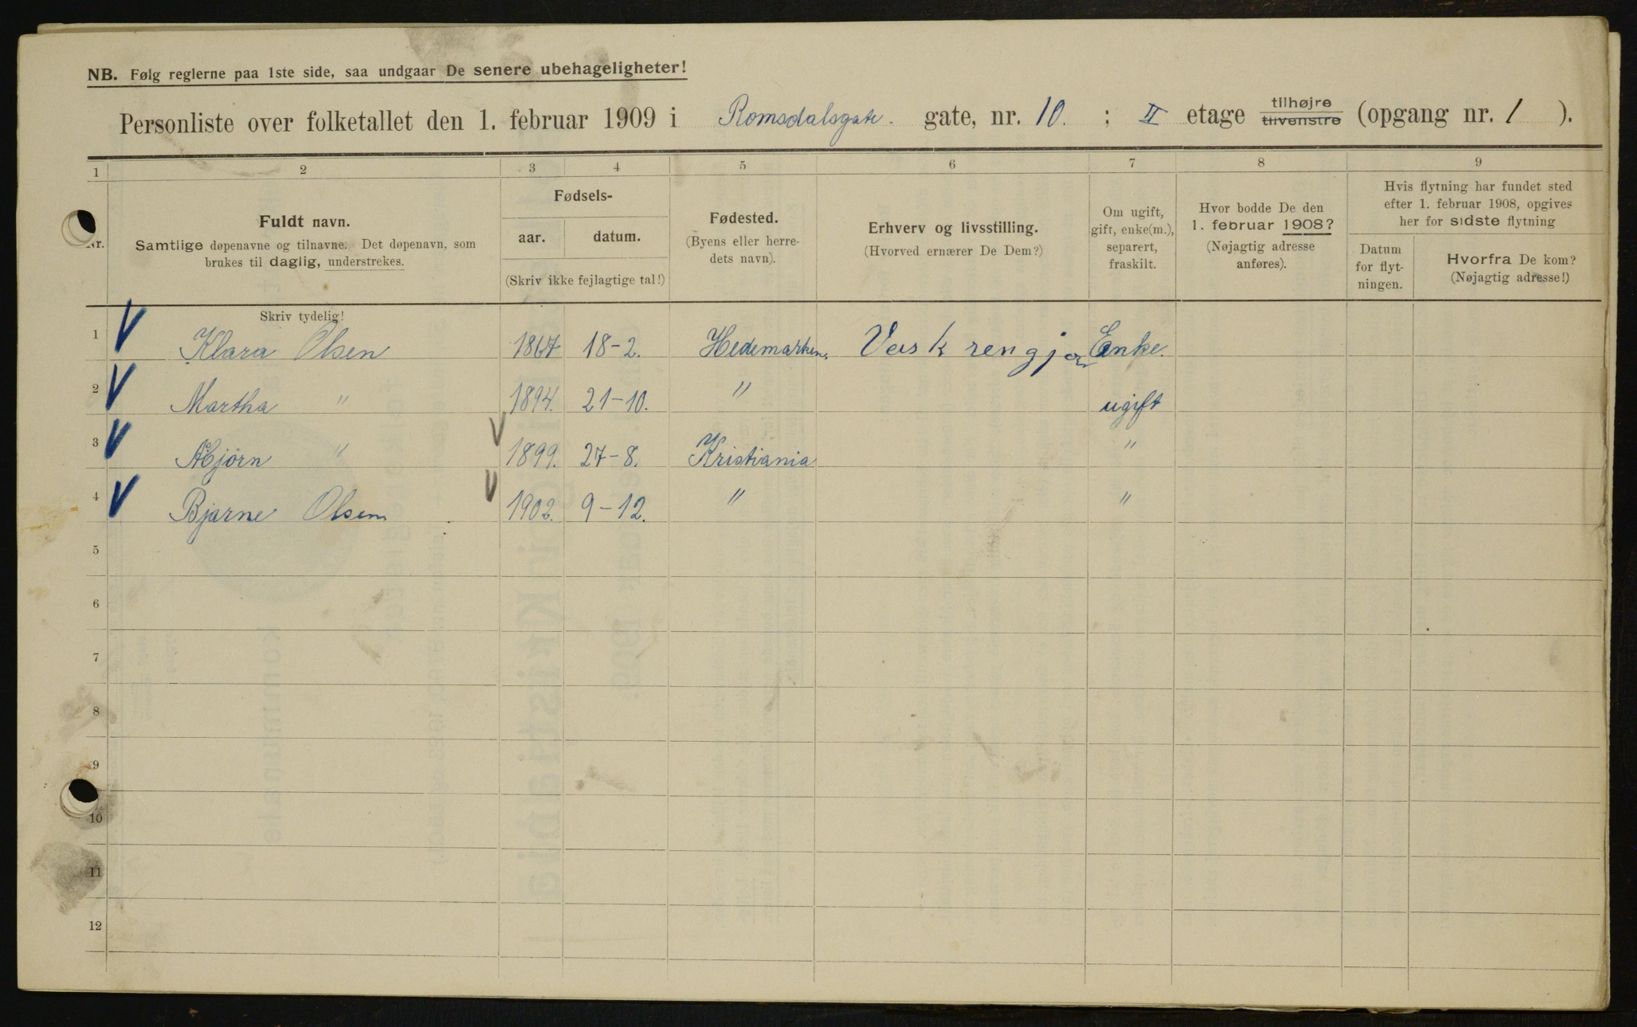 NB. Følg reglerne paa 1ste side, saa undgaar De senere ubehageligheter!
Personliste over folketallet den 1. februar 1909 i Romsdalsgate. gate, nr. 10. ; II etage tilhøjre tilvenstre (opgang nr. 1 ).
1 2 3 4 5 6 7 8 9
Nr.
Fuldt navn.
Samtlige døpenavne og tilnavne. Det døpenavn, som
brukes til daglig, understrekes.
Fødsels-
aar. datum.
(Skriv ikke fejlagtige tal!)
Fødested.
(Byens eller herre-
dets navn).
Erhverv og livsstilling.
(Hvorved ernærer De Dem?)
Om ugift,
gift, enke(m.),
separert,
fraskilt.
Hvor bodde De den
1. februar 1908?
(Nøjagtig adresse
anføres).
Hvis flytning har fundet sted
efter 1. februar 1908, opgives
her for sidste flytning
Datum
for flyt-
ningen.
Hvorfra De kom?
(Nøjagtig adresse!)
Skriv tydelig!
1 Klara Olsen 1867 18-2. Hedemarken. Vask rengjør Enke.
2 Martha " 1894. 21-10. " ugift
3 " 1899. 27-8. Kristiania "
4 Bjarne Olsen 1902. 9-12. " "
5
6
7
8
9
10
11
12